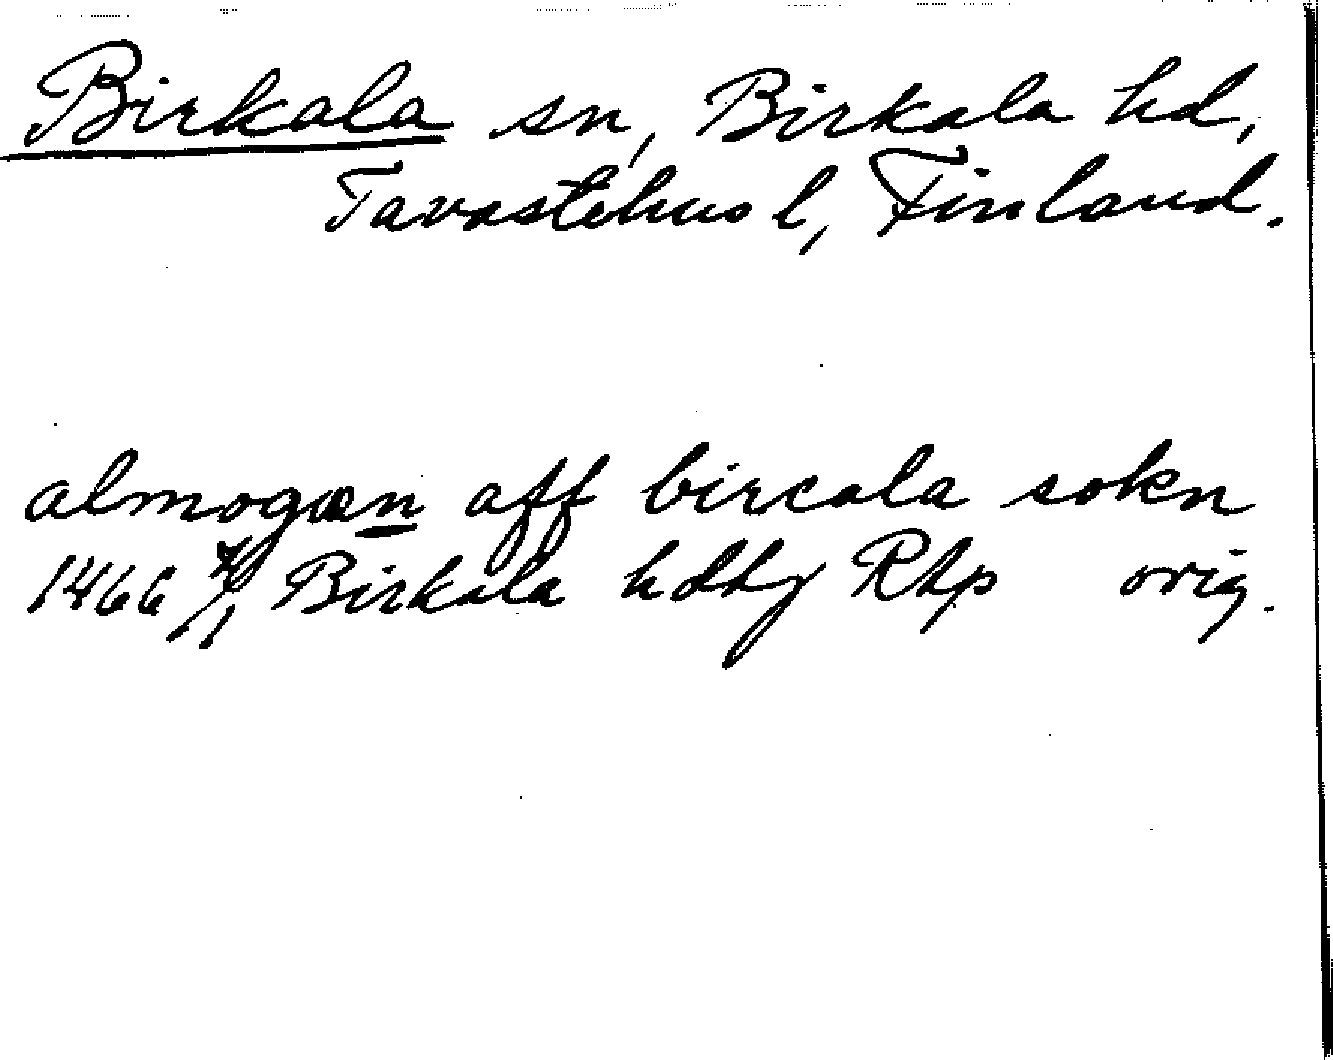 Birkala sn, Birkala hd,
Tavastehus l, Finland.
almogæn aff bircala sokn
1466 4/1 Birkala hdtg Rhp orig.